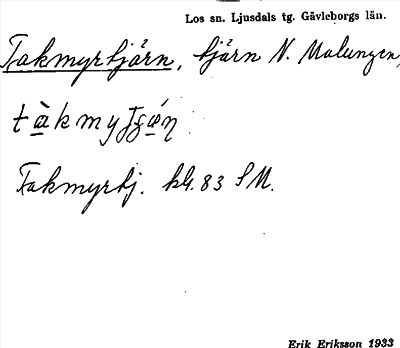 Los sn. Ljusdals tg. Gävleborgs län.
Takmyrtjärn, tjärn N. Malungen,
Takmyrtj. kbl. 83 SM.
Erik Eriksson 1933